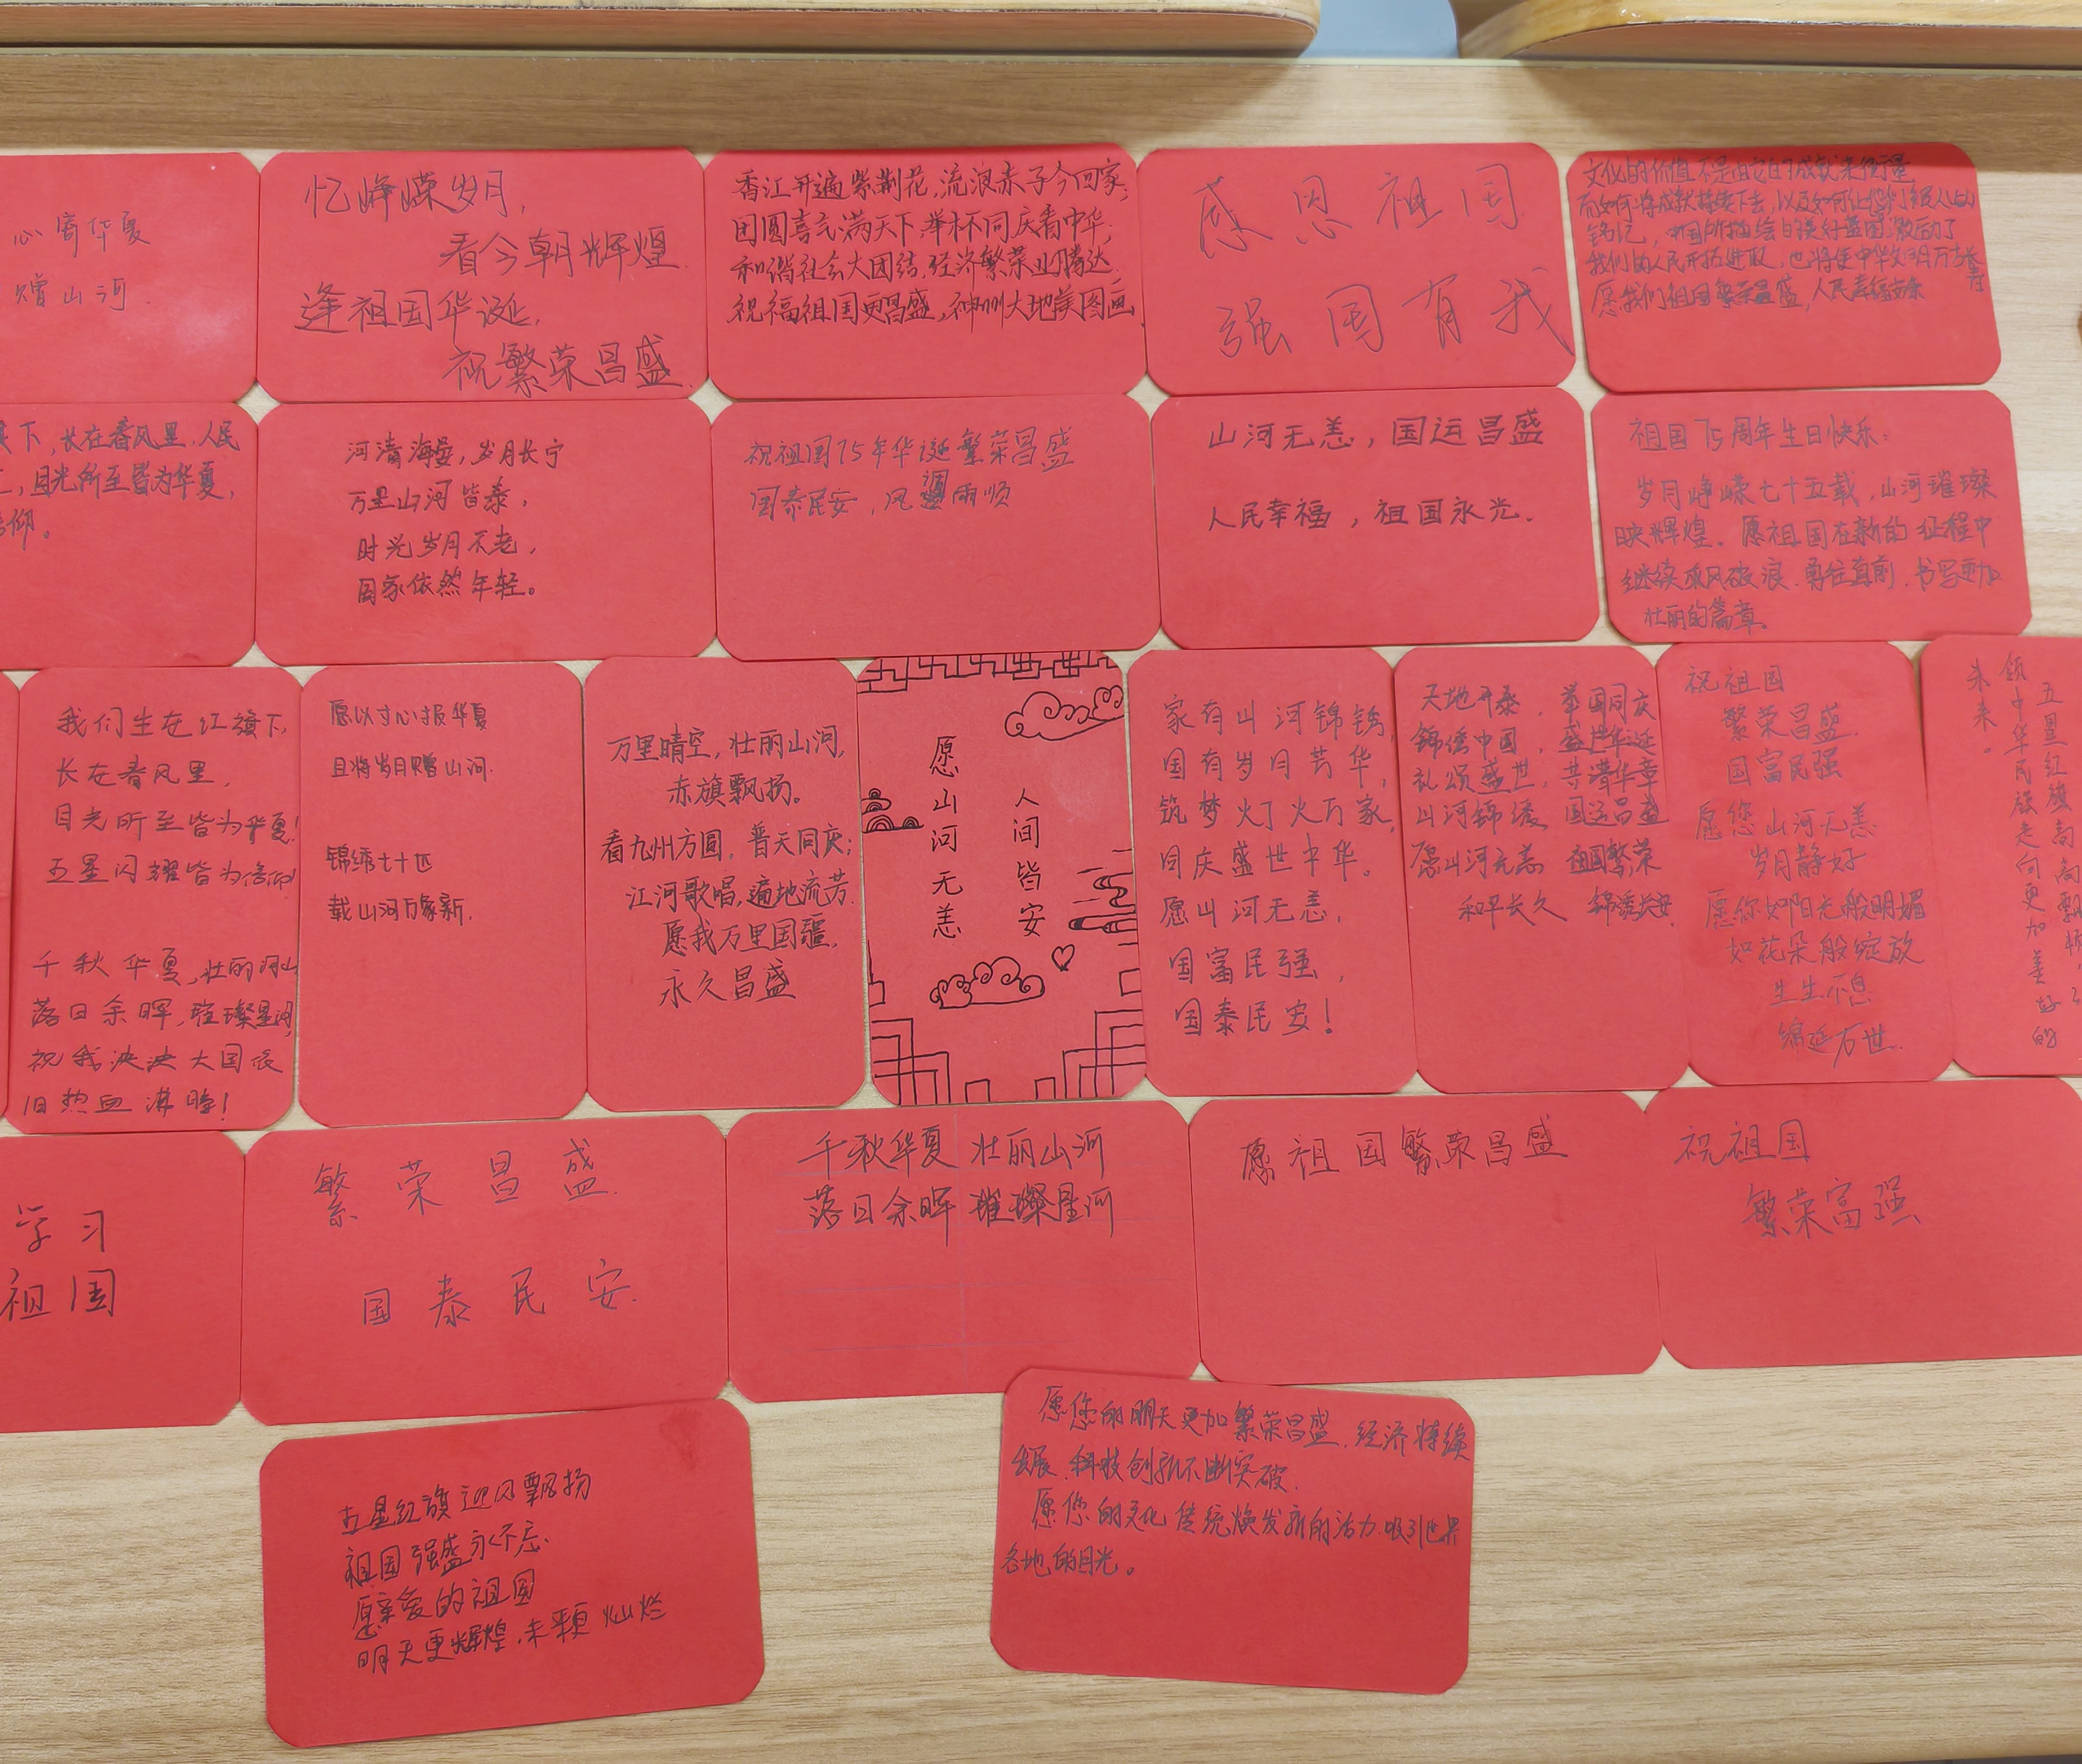 心寄华夏
赠山河
忆峥嵘岁月,
看今朝辉煌
逢祖国华诞,
祝繁荣昌盛.
香江开遍紫荆花,流浪赤子今回家;
团圆喜气满天下,举杯同庆看中华;
和谐社会大团结,经济繁荣业腾达.
祝福祖国更昌盛,神州大地美图画.
感恩祖国
强国有我
文化的价值不是由它的成就来衡量
而如何将成就接续下去,以及如何让
铭记,中国所描绘的美好蓝图,激励了
我们的人民开拓进取,也将使中华文明万古长青
愿我们祖国繁荣昌盛,人民幸福安康
下,长在春风里.人民
,目光所至皆为华夏,
信仰。
河清海晏,岁月长宁
万里山河皆泰,
时光岁月不老,
国家依然年轻。
祝祖国75年华诞繁荣昌盛
国泰民安,风调雨顺
山河无恙,国运昌盛
人民幸福,祖国永光.
祖国75周年生日快乐:
岁月峥嵘七十五载,山河璀璨
映辉煌.愿祖国在新的征程中
继续乘风破浪.勇往直前.书写更加
壮丽的篇章。
我们生在红旗下,
长在春风里,
目光所至皆为华夏!
五星闪耀皆为信仰!
千秋华夏,壮丽河山
落日余晖,璀璨星河,
祝我泱泱大国依
旧热血沸腾!
愿以寸心报华夏
且将岁月赠山河.
锦绣七十五
载山河万象新.
万里晴空,壮丽山河,
赤旗飘扬。
看九州方圆,普天同庆;
江河歌唱,遍地流芳.
愿我万里国疆,
永久昌盛
愿山河无恙
人间皆安
家有山河锦绣,
国有岁月芳华,
筑梦灯火万家,
同庆盛世中华。
愿山河无恙,
国富民强,
国泰民安!
天地开泰,举国同庆
锦绣中国,盛世华诞
礼颂盛世,共谱华章
山河锦绣 国运昌盛
愿山河无恙 祖国繁荣
和平长久 锦绣长安
祝祖国
繁荣昌盛.
国富民强
愿您山河无恙
岁月静好
愿你如阳光般明媚
如花朵般绽放
生生不息
绵延万世.
五星红旗高高飘扬,
领中华民族走向更加美好的
未来。
学习
祖国
繁荣昌盛.
国泰民安.
千秋华夏 壮丽山河
落日余晖 璀璨星河
愿祖国繁荣昌盛
祝祖国
繁荣富强
五星红旗迎风飘扬
祖国强盛永不忘.
愿亲爱的祖国
明天更辉煌.未来更灿烂
愿您的明天更加繁荣昌盛.经济持续
发展.科技创新不断突破.
愿您的文化传统焕发新的活力.吸引世界
各地的目光。